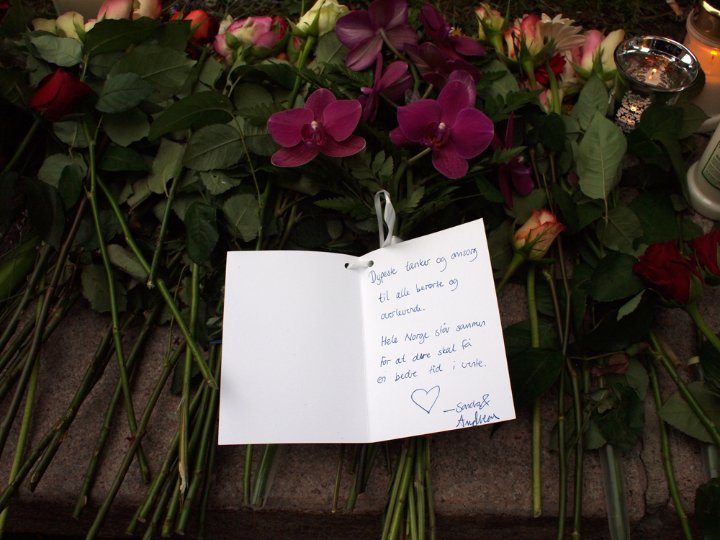 Dypeste tanker og omsorg
til alle berørte og
overlevende.
Hele Norge står sammen
for at dere skal få
en bedre tid i vente.
– Sandra &